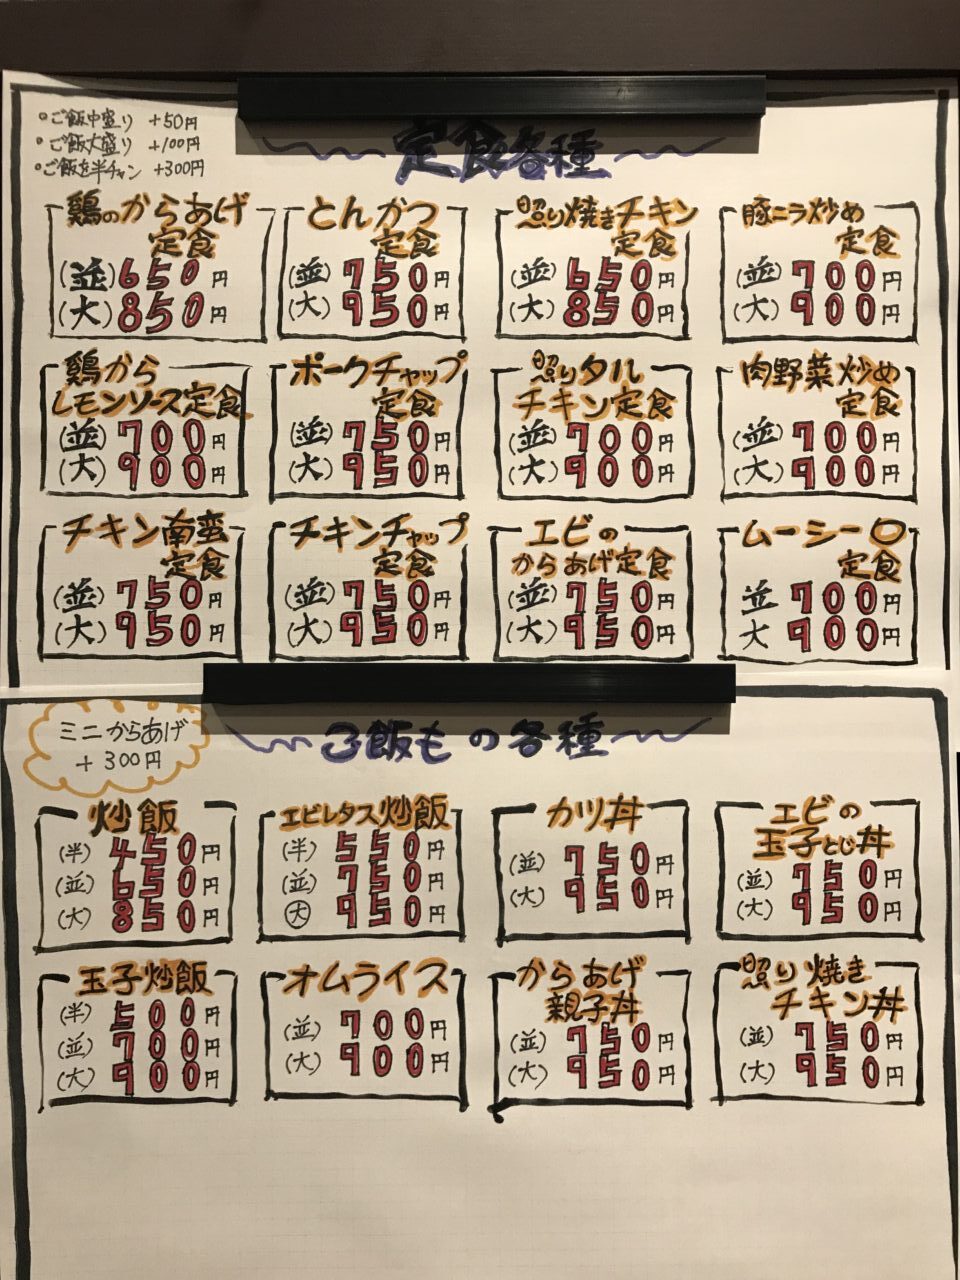 定食各種
•ご飯中盛り +50円
•ご飯大盛り +100円
•ご飯を半チャン +300円
鶏のからあげ
定食
(並)650円
(大)850円
とんかつ
定食
(並)750円
(大)950円
照り焼きチキン
定食
(並)650円
(大)850円
豚ニラ炒め
定食
(並)700円
(大)900円
鶏から
レモンソース定食
(並)700円
(大)900円
ポークチャップ
定食
(並)750円
(大)950円
照りタル
チキン定食
(並)700円
(大)900円
肉野菜炒め
定食
(並)700円
(大)900円
チキン南蛮
定食
(並)750円
(大)950円
チキンチャップ
定食
(並)750円
(大)950円
エビの
からあげ定食
(並)750円
(大)950円
ムーシーロ
定食
並 700円
大 900円
ミニからあげ
+300円
ご飯もの各種
炒飯
(半)450円
(並)650円
(大)850円
エビレタス炒飯
(半)550円
(並)750円
(大)950円
カツ丼
(並)750円
(大)950円
エビの
玉子とじ丼
(並)750円
(大)950円
玉子炒飯
(半)500円
(並)700円
(大)900円
オムライス
(並)700円
(大)900円
からあげ
親子丼
(並)750円
(大)950円
照り焼き
チキン丼
(並)750円
(大)950円